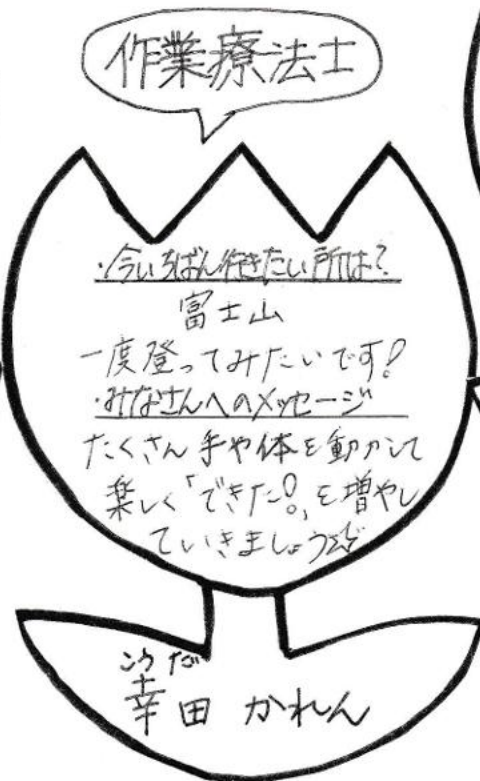 作業療法士
・今いちばん行きたい所は？
富士山
一度登ってみたいです!
・みなさんへのメッセージ
たくさん手や体を動かして
楽しく「できた!」を増やし
ていきましょう
こうだ
幸田 かれん